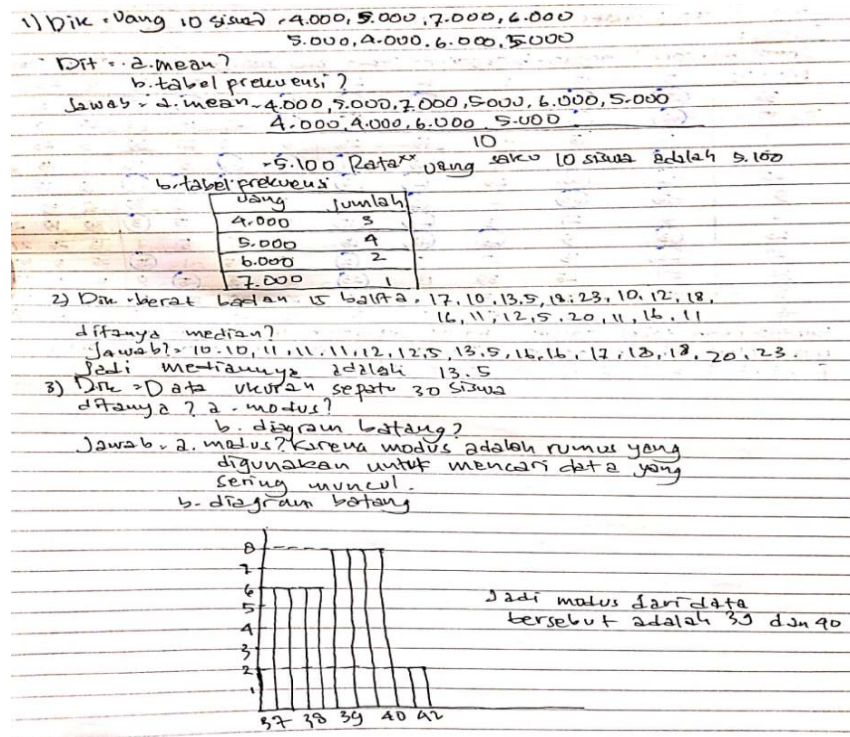 1) Dik = Uang 10 siswa = 4.000, 5.000, 7.000, 6.000
5.000, 4.000, 6.000, 5.000
Dit = a. mean?
b. tabel prekuensi?
Jawab = a. mean = 4.000, 5.000, 7.000, 5000, 6.000, 5.000
4.000, 4.000, 6.000, 5.000
10
= 5.100 Rata** uang saku 10 siswa adalah 5.100
b. tabel prekuensi
Uang Jumlah
4.000 3
5.000 4
6.000 2
7.000 1
2) Dik = berat badan 15 balita = 17, 10, 13,5, 18, 23, 10, 12, 18,
16, 11, 12,5, 20, 11, 16, 11
ditanya median?
Jawab? = 10, 10, 11, 11, 11, 12, 12,5, 13,5, 16, 16, 17, 18, 18, 20, 23.
Jadi mediannya adalah 13.5
3) Dik = Data ukuran sepatu 30 siswa
ditanya? a. modus?
b. diagram batang?
Jawab = a. modus? karena modus adalah rumus yang
digunakan untuk mencari data yang
sering muncul.
b. diagram batang
8
7
6
5
4
3
2
1
37 38 39 40 42
Jadi modus dari data
bersebut adalah 39 dan 40